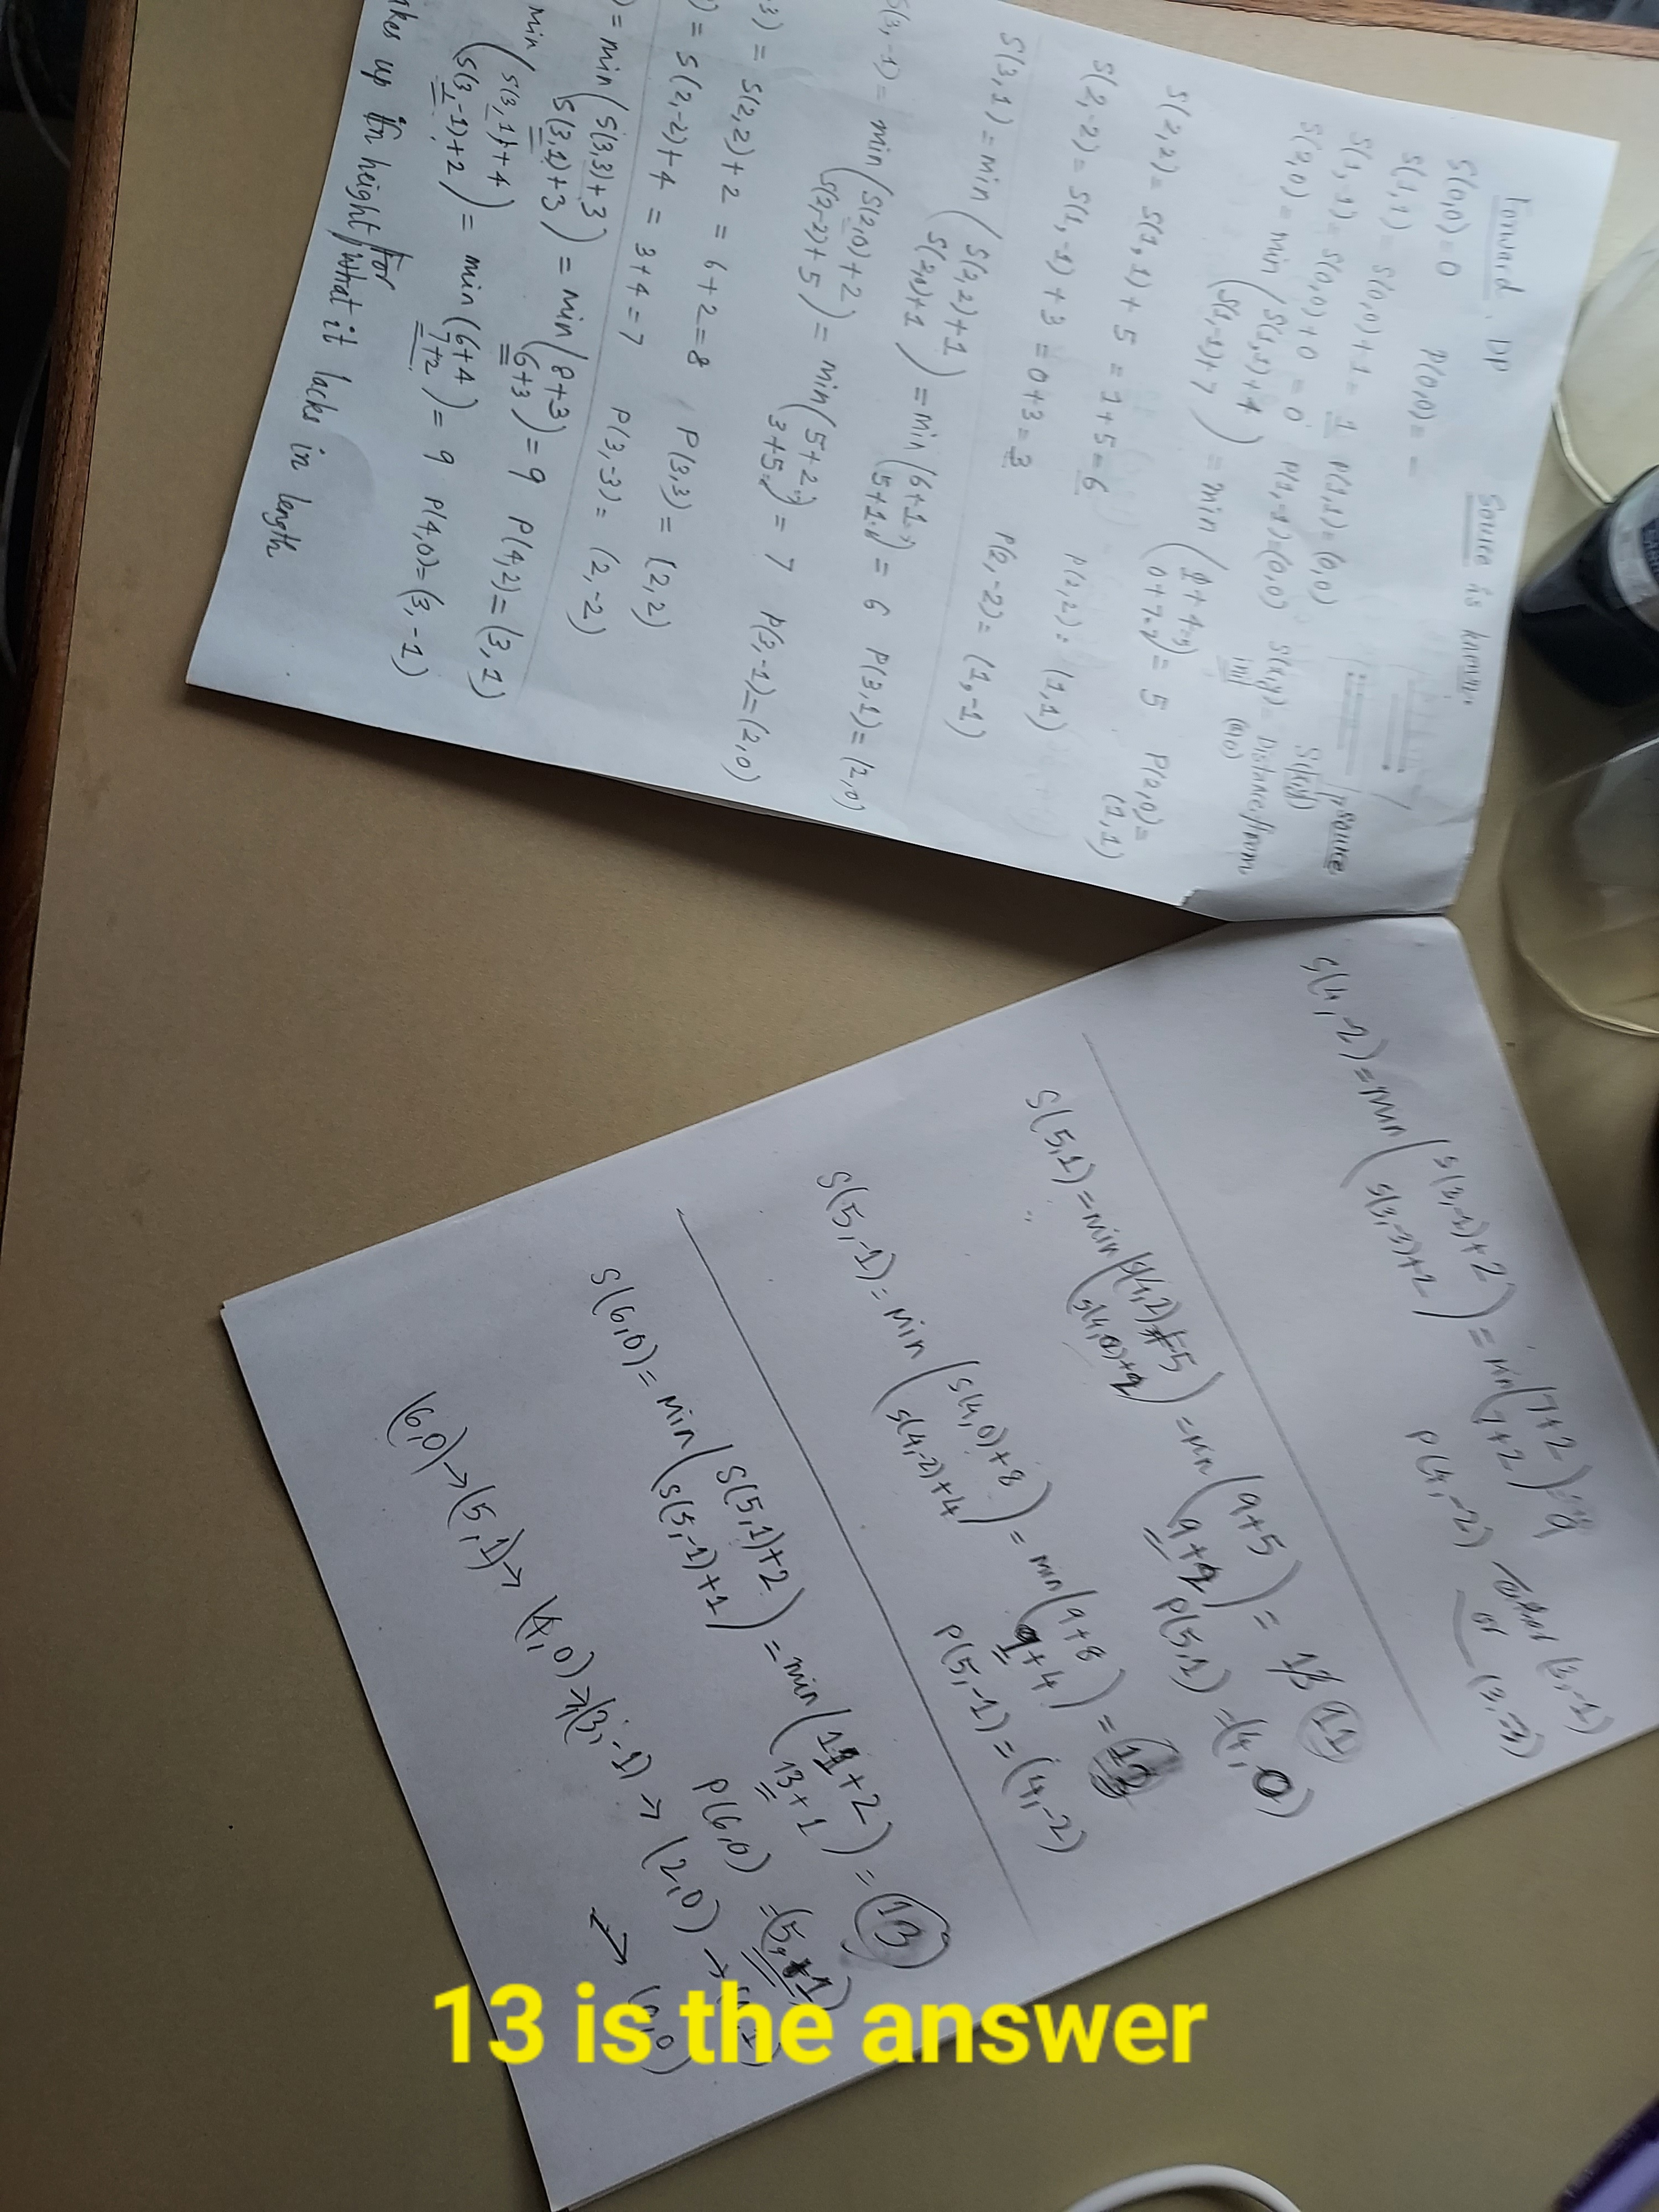 Forward DP Source is known
S(0,0)=0 P(0,0)= –
S(1,1) = S(0,0)+1 = 1 P(1,1)=(0,0)
S(1,-1)= S(0,0)+0 = 0 P(1,-1)=(0,0) S(x,y)= Distance from
source
(0,0)
S(2,0) = min (S(1,1)+4
S(1,-1)+7) = min (1+4
0+7) = 5 P(2,0)=
(1,1)
S(2,2)= S(1,1)+5 = 1+5=6 P(2,2)= (1,1)
S(2,-2)= S(1,-1)+3 = 0+3=3 P(2,-2)= (1,-1)
S(3,1)=min (S(2,2)+1
S(2,0)+1) =min (6+1
5+1) = 6 P(3,1)=(2,0)
S(3,-1)= min (S(2,0)+2
S(2,-2)+5) = min (5+2
3+5) = 7 P(3,-1)=(2,0)
3) = S(2,2)+2 = 6+2=8 P(3,3)= (2,2)
) = S(2,-2)+4 = 3+4=7 P(3,-3)= (2,-2)
) = min (S(3,3)+3
S(3,1)+3) = min (8+3
6+3) = 9 P(4,2)=(3,1)
min (S(3,1)+4
S(3,-1)+2) = min (6+4
7+2) = 9 P(4,0)=(3,-1)
akes up in height for
what it lacks in length
S(4,-2)=min (S(3,-1)+2
S(3,-3)+2) = min (7+2
7+2) = 9
P(4,-2) (3,-1)
or (3,-3)
S(5,1)=min (S(4,2)+5
S(4,0)+2) = min (9+5
9+2) = 11
P(5,1) =(4,0)
S(5,-1)= min (S(4,0)+8
S(4,-2)+4) = min (9+8
9+4) =
P(5,-1)=(4,-2)
S(6,0)= min (S(5,1)+2
S(5,-1)+1) = min (11+2
13+1) = 13
P(6,0) =(5,+1)
(6,0)→(5,1)→ (4,0)→(3,-1) → (2,0) →
→ (0,0)
13 is the answer